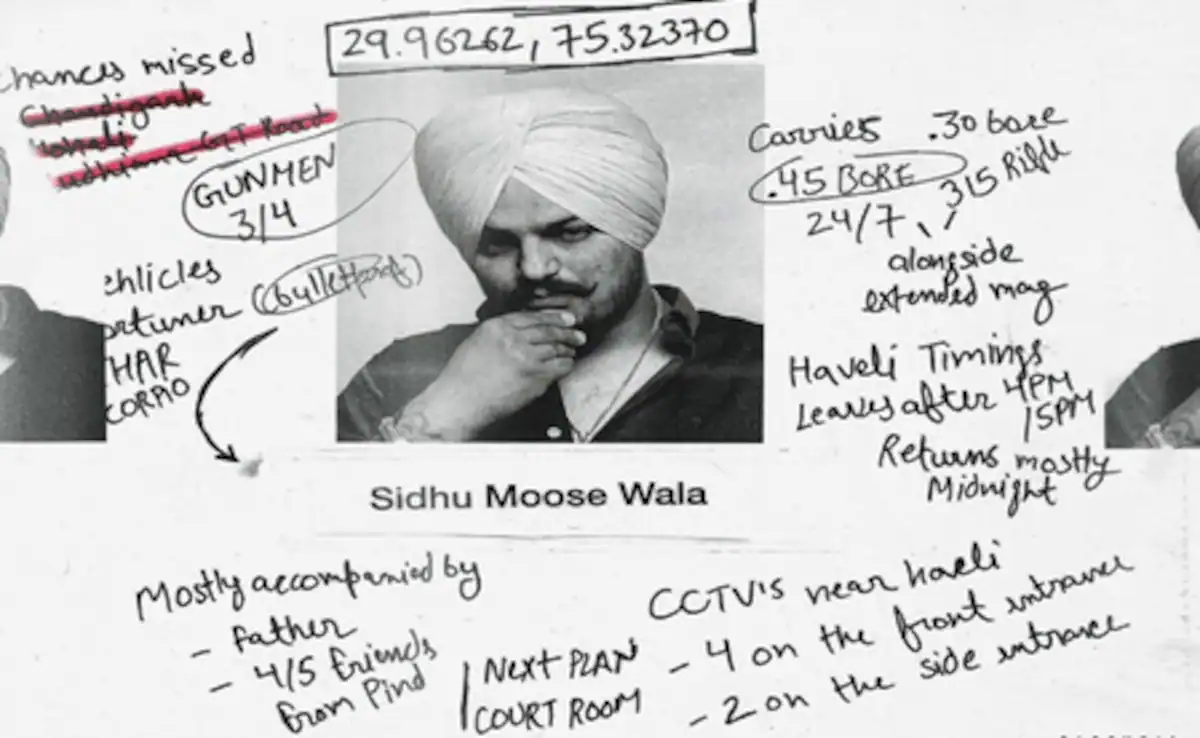 29.96262, 75.32370
chances missed
Chandigarh
Mohali
udhiana GT Road
GUNMEN
3/4
ehlicles
ortuner (bulletproof)
HAR
CORPIO
Carries .30 bore
.45 BORE
315 Rifle
24/7
alongside
extended mag
Haveli Timings
Leaves after 4PM
/5PM
Returns mostly
Midnight
Sidhu Moose Wala
Mostly accompanied by
- Father
- 4/5 friends
from Pind
NEXT PLAN
COURT ROOM
CCTV's near haveli
- 4 on the front entrance
- 2 on the side entrance